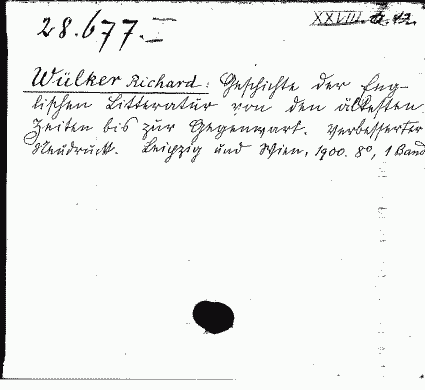 28.677.-I
XXVIII. 12.
Wülker Richard: Geschichte der Eng-
lischen Litteratur von den ältesten
Zeiten bis zur Gegenwart. Verbesserter
Neudruck. Leipzig und Wien, 1900. 8°, 1 Band